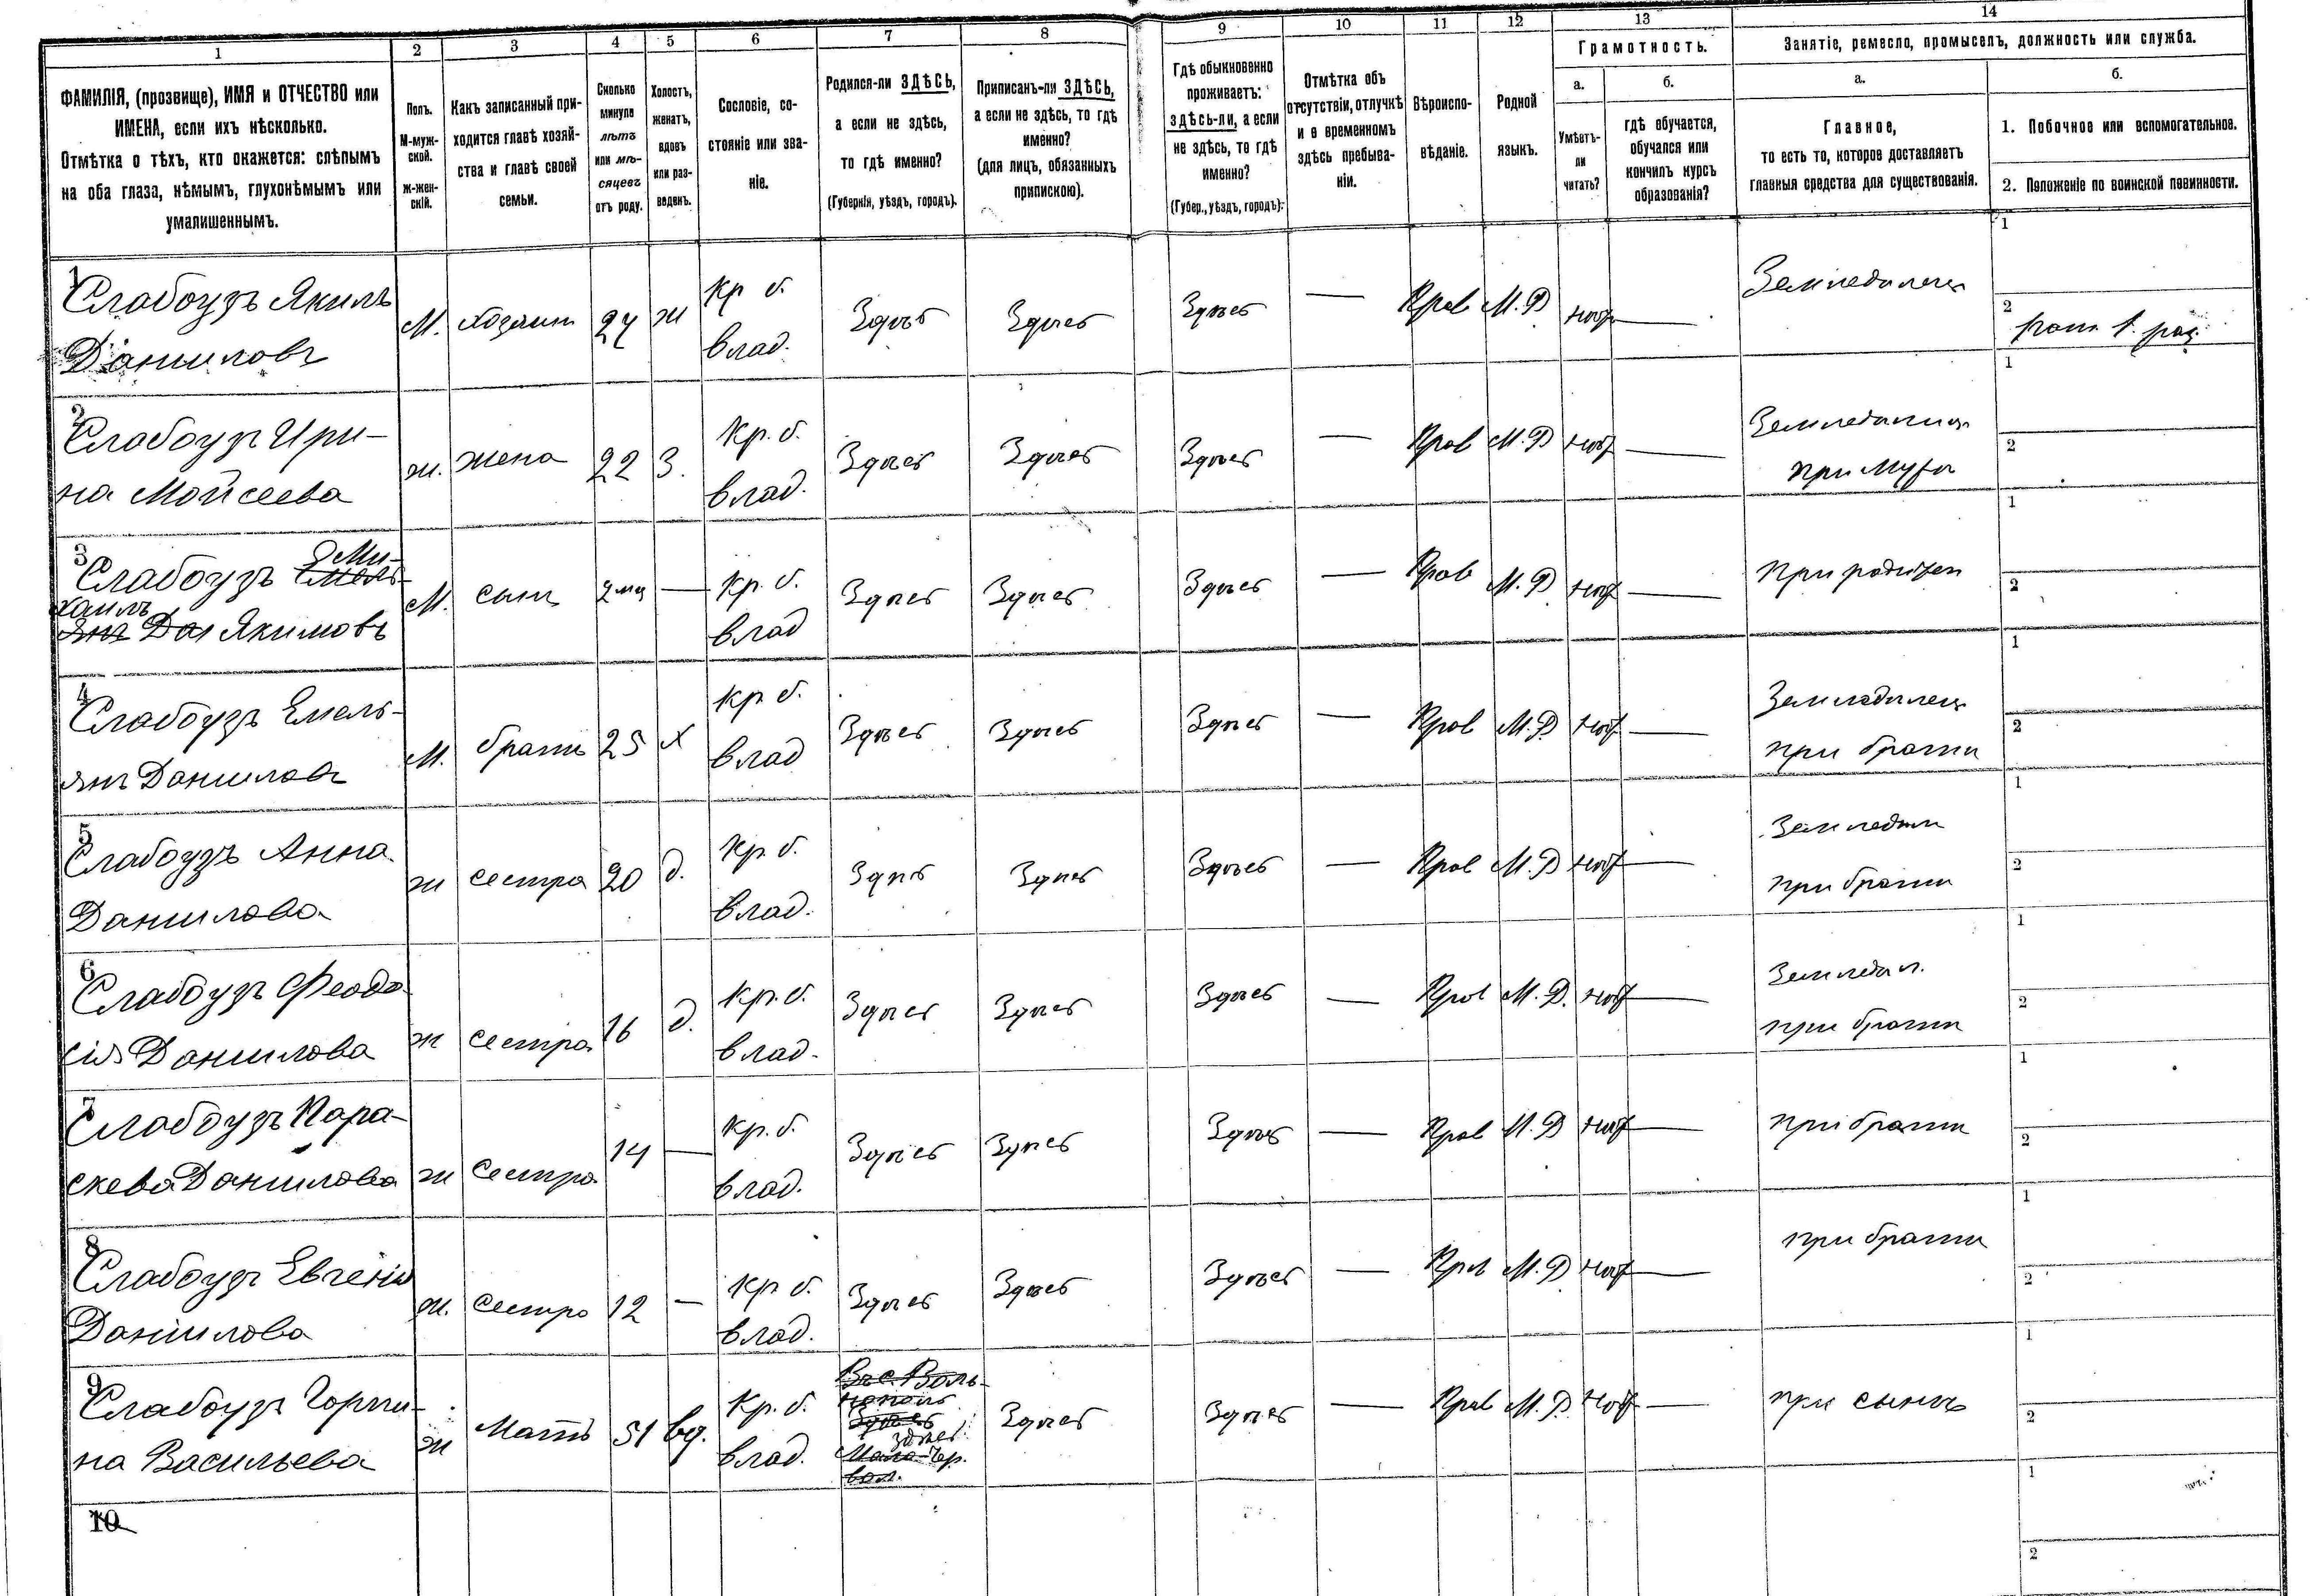 1 2 3 4 5 6 7 8 9 10 11 12 13 14
ФАМИЛІЯ, (прозвище), ИМЯ и ОТЧЕСТВО или
ИМЕНА, если ихъ нѣсколько.
Отмѣтка о тѣхъ, кто окажется: слѣпымъ
на оба глаза, нѣмымъ, глухонѣмымъ или
умалишеннымъ.
Полъ.
М-муж-
ской.
Ж-жен-
скій.
Какъ записанный при-
ходится главѣ хозяй-
ства и главѣ своей
семьи.
Сколько
минуло
лѣтъ
или мѣ-
сяцевъ
отъ роду.
Холостъ,
женатъ,
вдовъ
или раз-
веденъ.
Сословіе, со-
стояніе или зва-
ніе.
Родился-ли ЗДѢСЬ,
а если не здѣсь,
то гдѣ именно?
(Губернія, уѣздъ, городъ).
Приписанъ-ли ЗДѢСЬ,
а если не здѣсь, то гдѣ
именно?
(для лицъ, обязанныхъ
припискою).
Гдѣ обыкновенно
проживаетъ:
здѣсь-ли, а если
не здѣсь, то гдѣ
именно?
(Губер., уѣздъ, городъ).
Отмѣтка объ
отсутствіи, отлучкѣ
и о временномъ
здѣсь пребыва-
ніи.
Вѣроиспо-
вѣданіе.
Родной
языкъ.
Грамотность.
а.
Умѣетъ-
ли
читать?
б.
гдѣ обучается,
обучался или
кончилъ курсъ
образованія?
Занятіе, ремесло, промыселъ, должность или служба.
а.
Главное,
то есть то, которое доставляетъ
главныя средства для существованія.
б.
1. Побочное или вспомогательное.
2. Положеніе по воинской повинности.
1
Слабоузъ Якимъ
Даниловъ
М. хозяин 24 ж
Кр. б.
влад.
Здѣсь Здѣсь Здѣсь — Прав М. Р нѣт —
Земледѣлец
1
2
2
Слабоузъ Ири-
на Мойсеева
ж. жена 22 З.
Кр. б.
влад.
Здѣсь Здѣсь Здѣсь — Прав М. Р нѣт —
при мужѣ
1
2
3
Слабоузъ Ми-
хаилъ
Якимовъ
М. сынъ 2 мц —
Кр. б.
влад
Здѣсь Здѣсь Здѣсь — Прав М. Р нѣт —
1
2
4
Слабоузъ Емель-
янъ Даниловъ
М. братъ 25 х
Кр б.
влад
Здѣсь Здѣсь Здѣсь — Прав М. Р нѣт —
Земледѣлец
при братѣ
1
2
5
Слабоузъ Анна
Данилова
ж сестра 20 д.
Кр. б.
влад.
Здѣсь Здѣсь Здѣсь — Прав М. Р нѣт —
при братѣ
1
2
6
Слабоузъ Феодо
сія Данилова
ж сестра 16 д.
Кр. б.
влад.
Здѣсь Здѣсь Здѣсь — Прав М. Р. нѣт —
Земледѣл.
при братѣ
1
2
7
Слабоузъ Пара-
скева Данилова
ж сестра 14 —
Кр. б.
влад.
Здѣсь Здѣсь Здѣсь — Прав М. Р нѣт —
при братѣ
1
2
8
Слабоузъ Евгенія
Данилова
ж. сестра 12 —
Кр б.
влад.
Здѣсь Здѣсь Здѣсь — Прав М. Р нѣт —
при братѣ
1
2
9
Слабоузъ Горпи-
на Васильева
ж Мать 51 вд.
Кр. б.
влад.
здѣсь
Здѣсь Здѣсь — Прав М. Р нѣт —
при сынѣ
1
2
10
1
2